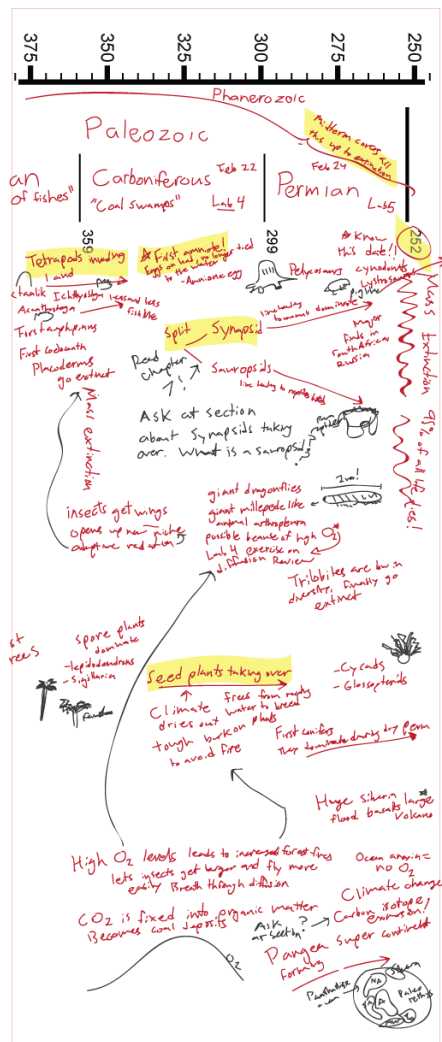 375
350
325
300
275
250
Phanerozoic
Paleozoic
Midterm covers all
this up to extinction
an
of fishes"
Carboniferous
Feb 22
"Coal swamps"
Lab 4
Feb 24
Permian
Lab5
359
299
252
Tetrapods invading
land
Ichthyostega less and less
fishlike
Acanthostega
First amphibians
First coelacanth
Placoderms
go extinct
Mass extinction
First amniote!
Eggs on land no longer tied
to the water
-Amniote egg
Pelycosaurs
Know
this date!!
cynodonts
Lystrosaurus
Mass Extinction 95% of all life dies!
Split
Synapsid
line leading
to mammals dominate
Major
finds in
South Africa
Russia
Read
Chapter
!
Sauropsids
line leading to reptiles birds
Ask at section
about Synapsids taking
over. What is a sauropsid?
2m!
insects get wings
opens up new niche
adaptive radiation
giant dragonflies
giant millepede like
animal arthropleura
possible because of high O2*
Lab 4 exercise on
diffusion Review
Trilobites are low in
diversity, finally go
extinct
st
rees
Spore plants
dominate
-lepidodendrons
-Sigillaria
Seed plants taking over
Climate
dries out
frees from needing
water to breed
tough bark on plants
to avoid fire
-Cycads
-Glossopterids
First conifers
They dominate during dry perm
Huge Siberian large
flood basalts volcano
High O2 levels leads to increased forest fires
lets insects get larger and fly more
easily Breath through diffusion
Ocean anoxia=
no O2
Climate change
CO2 is fixed into organic matter
Becomes coal deposits
Ask
at section?
Carbon isotope
excursion?
O2
Pangea Super continent
Forming
Panthalassa
ocean
Siberia
NA
SA
A
Paleo
tethys